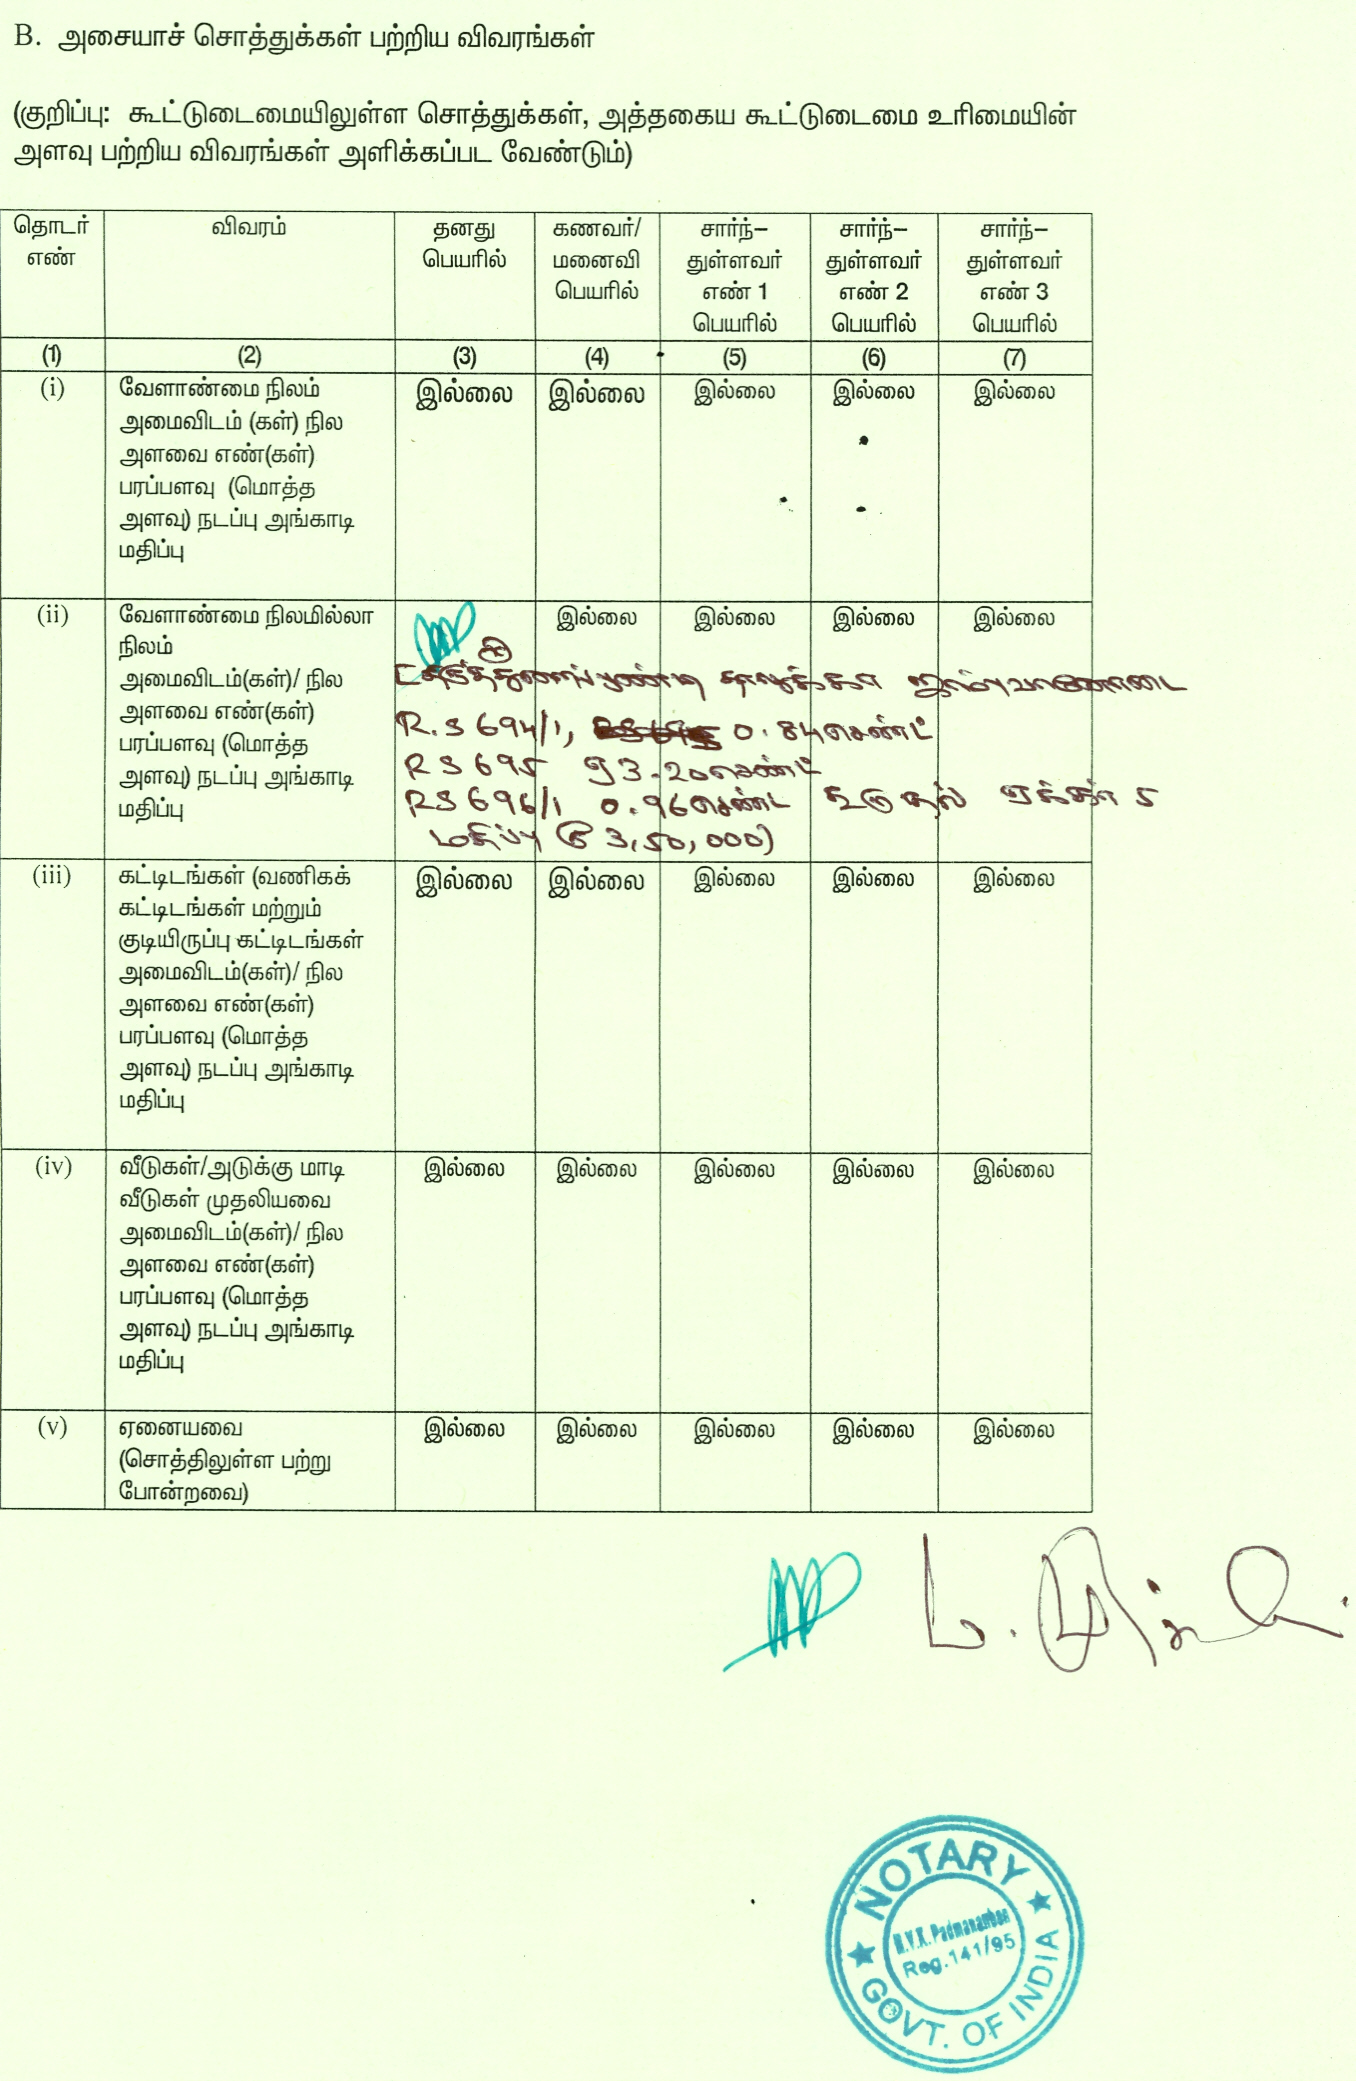 B. அசையாச் சொத்துக்கள் பற்றிய விவரங்கள்
(குறிப்பு: கூட்டுடைமையிலுள்ள சொத்துக்கள், அத்தகைய கூட்டுடைமை உரிமையின்
அளவு பற்றிய விவரங்கள் அளிக்கப்பட வேண்டும்)
தொடர் எண் விவரம் தனது பெயரில் கணவர்/ மனைவி பெயரில் சார்ந்– துள்ளவர் எண் 1 பெயரில் சார்ந்– துள்ளவர் எண் 2 பெயரில் சார்ந்– துள்ளவர் எண் 3 பெயரில்
(1) (2) (3) (4) (5) (6) (7)
(i) வேளாண்மை நிலம் இல்லை இல்லை இல்லை இல்லை இல்லை
அமைவிடம் (கள்) நில
அளவை எண்(கள்)
பரப்பளவு (மொத்த
அளவு) நடப்பு அங்காடி
மதிப்பு
(ii) வேளாண்மை நிலமில்லா இல்லை இல்லை இல்லை இல்லை
நிலம்
அமைவிடம்(கள்)/ நில
அளவை எண்(கள்)
பரப்பளவு (மொத்த
அளவு) நடப்பு அங்காடி
மதிப்பு
R.S 694/1, 0.84 செண்ட்
R S 695 3.20 செண்ட்
R S 696/1 0.96 செண்ட் 5
மதிப்பு ரூ 3,50,000)
(iii) கட்டிடங்கள் (வணிகக் இல்லை இல்லை இல்லை இல்லை இல்லை
கட்டிடங்கள் மற்றும்
குடியிருப்பு கட்டிடங்கள்
அமைவிடம்(கள்)/ நில
அளவை எண்(கள்)
பரப்பளவு (மொத்த
அளவு) நடப்பு அங்காடி
மதிப்பு
(iv) வீடுகள்/அடுக்கு மாடி இல்லை இல்லை இல்லை இல்லை இல்லை
வீடுகள் முதலியவை
அமைவிடம்(கள்)/ நில
அளவை எண்(கள்)
பரப்பளவு (மொத்த
அளவு) நடப்பு அங்காடி
மதிப்பு
(v) ஏனையவை இல்லை இல்லை இல்லை இல்லை இல்லை
(சொத்திலுள்ள பற்று
போன்றவை)
NOTARY
Reg.141/95
GOVT. OF INDIA